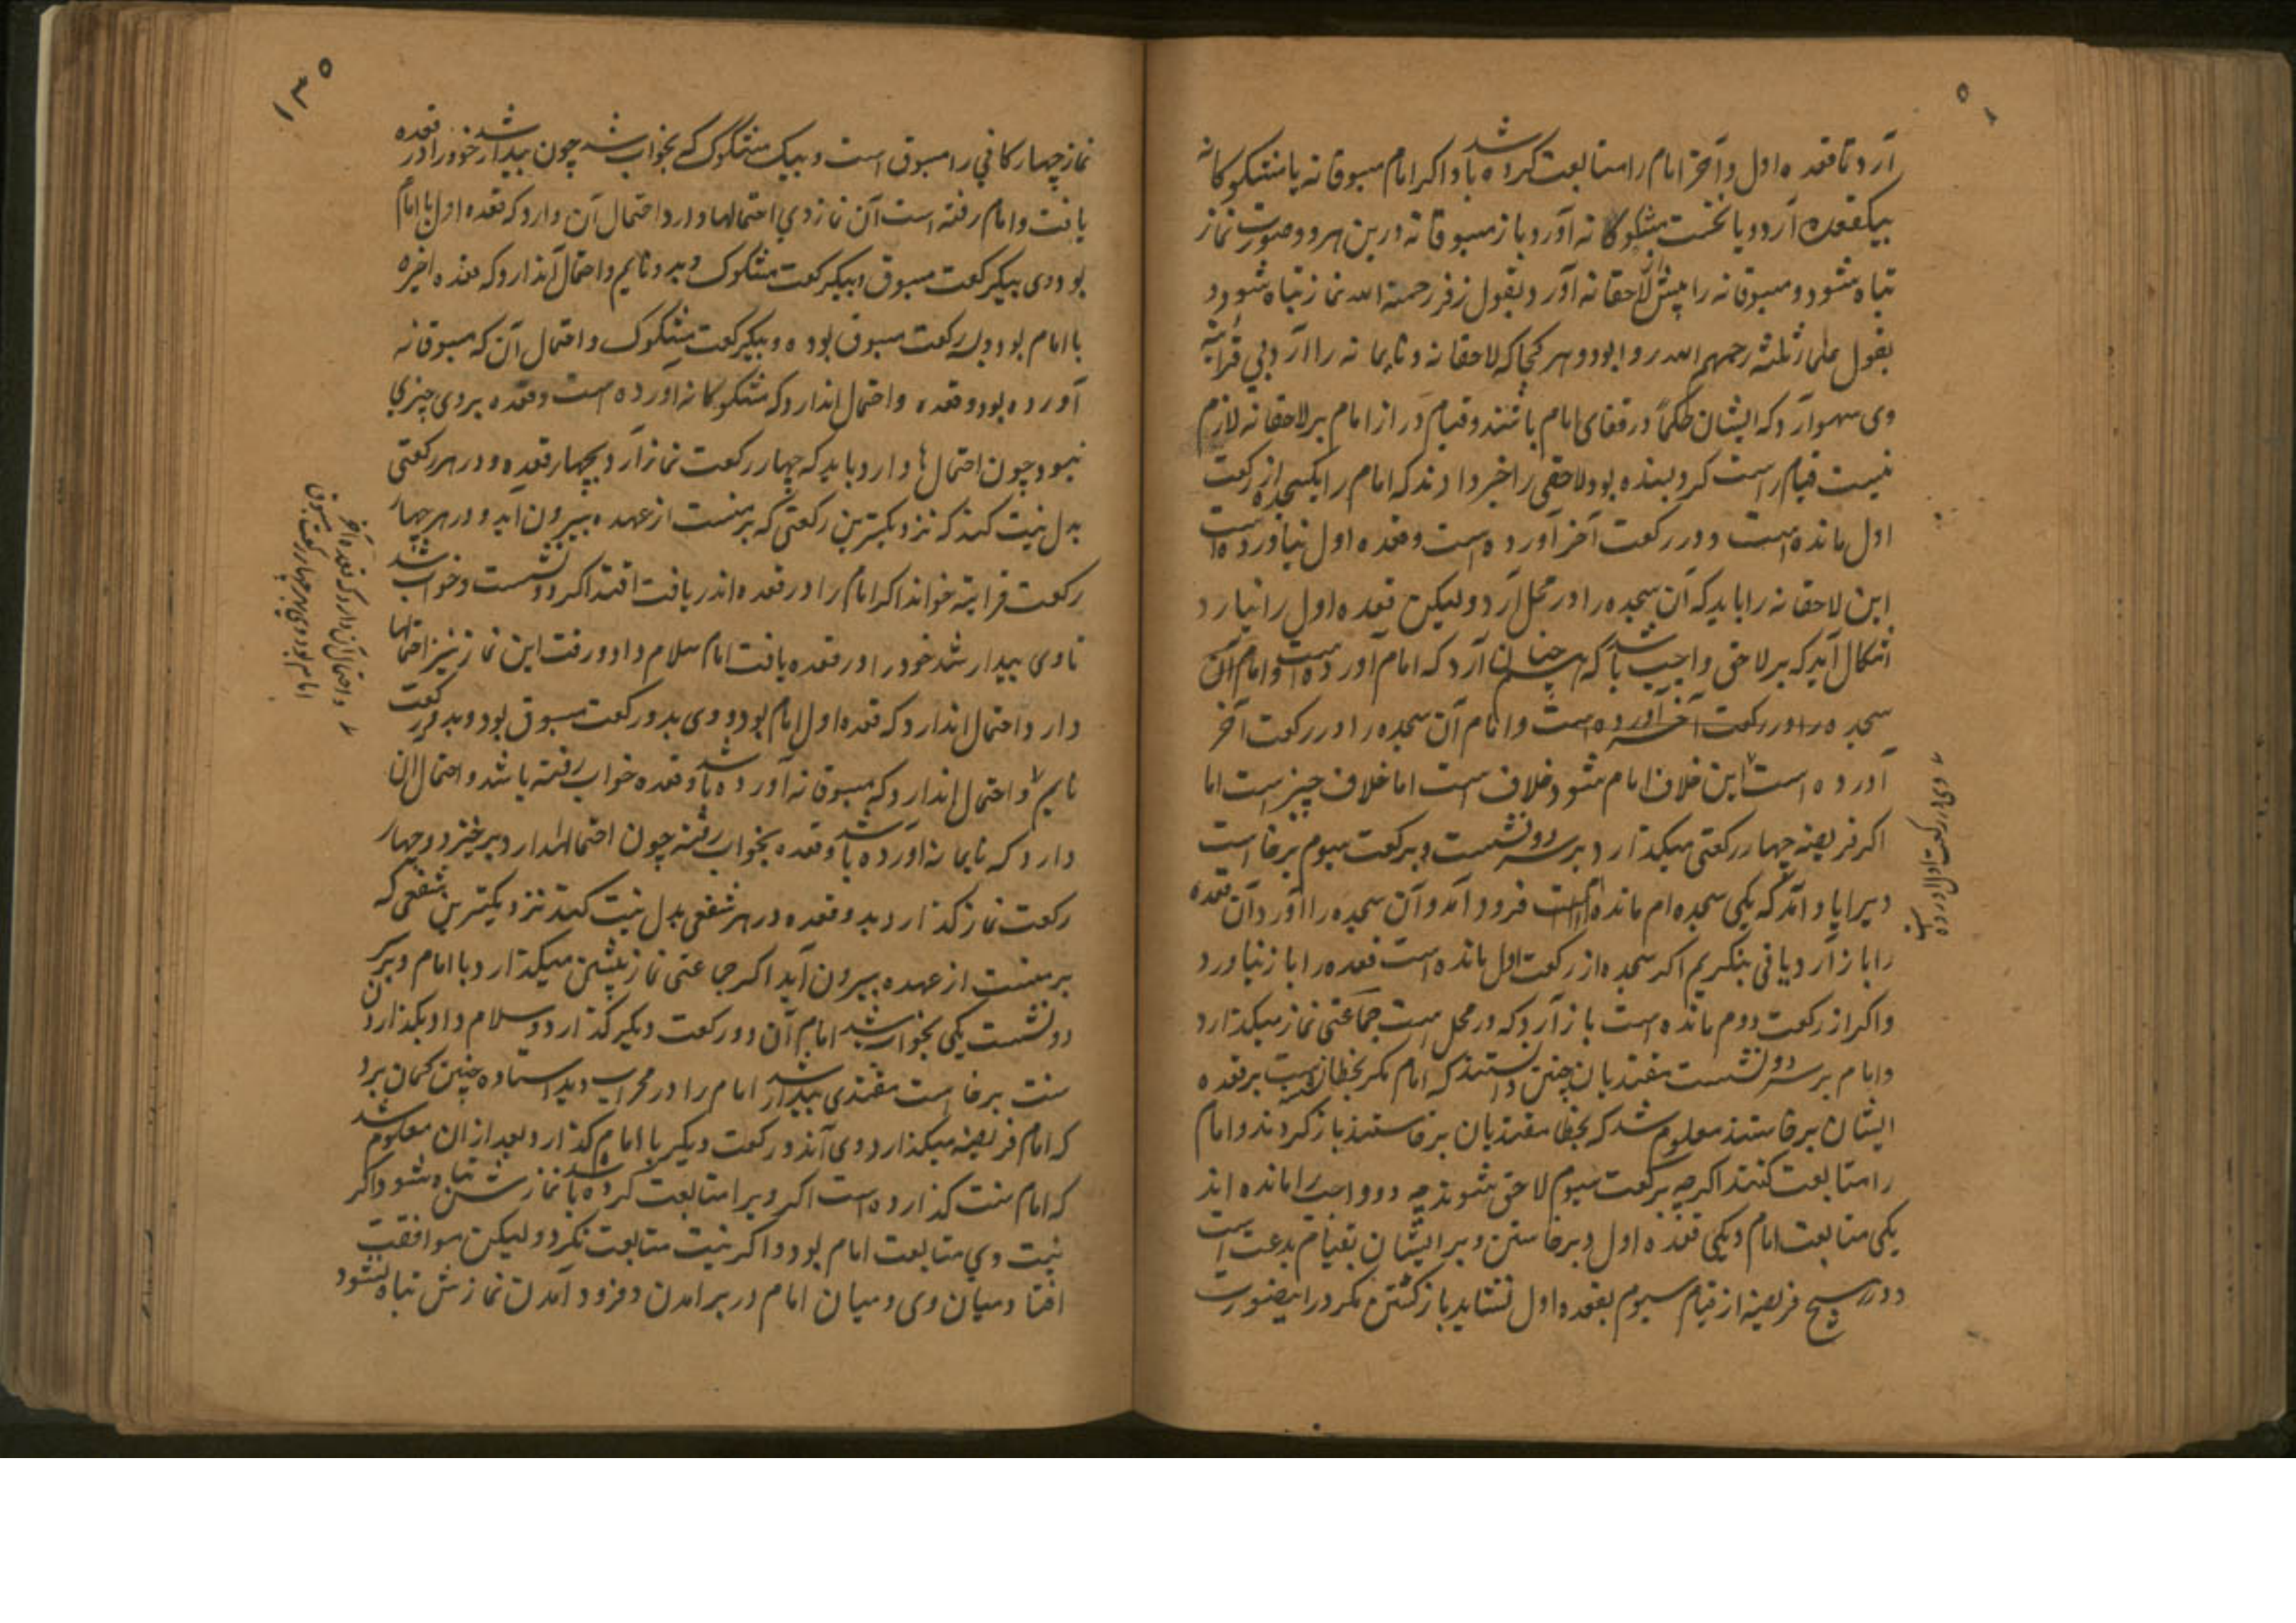 آرد تا قعده اول و آخر امام را متابعت کرده باشد و اکر امام مسبوقانه یا مشکوکانه
بیکقعده آرد و یا نخست مشکوکانه آورد باز مسبوقانه درین هر دو صورت نماز
تباه شود و مسبوقانه را پیش لاحقانه آورد بقول زفر رحمة الله نماز تباه شود و
بقول علمای ثلثه رحمهم الله روا بود و هر کجا که لاحقانه و نایمانه را آرد بی قرائة
وی سهو آرد که ایشان حکماً در قفای امام باشند و قیام دراز امام بر لاحقانه لازم
نیست قیام راست کرد بسنده بود لاحقی را خبر دادند که امام را یکسجده از رکعت
اول مانده است و در رکعت آخر آورده است و قعده اول نیاورده است
این لاحقانه را باید که آن سجده را در محل آرد ولیکن قعده اول را نیارد
اشکال آید که بر لاحق واجب باشد که همچنان آرد که امام آورده است و امام آن
سجده را در رکعت آخر آورده است و امام آن سجده را در رکعت آخر
آورده است این خلاف امام شود خلاف است اما خلاف چیز است اما
اکر فریضه چهار رکعتی میکذارد بر سر دو نشست و برکعت سیوم برخاست
ویرا یاد آمد که یکی سجده ام مانده است فرود آمد و آن سجده را آورد آن قعده
را باز آرد یا نی بنکریم اکر سجده از رکعت اول مانده است قعده را باز نیاورد
و اکر از رکعت دوم مانده است باز آرد که در محل است جماعتی نماز میکذارد
و امام بر سر دو نشست مقتدیان چنین دانستند که امام مکر بخطا نشست بر قعده
ایشان برخاستند معلوم شد که بخطا مقتدیان برخاستند باز کردند و امام
را متابعت کنند اکر چه برکعت سیوم لاحق شوند چه دو واجب را مانده اند
یکی متابعت امام و یکی قعده اول و برخاستن و بر ایشان بقیام بدعت است
و در هیچ فریضه از قیام سیوم بقعده اول نشاید باز کشتن مکر در اینصورت
وی در رکعت اول آورده است
۱۳۵
نماز چهارکانی را مسبوق است و بیک مشکوک که بخواب شد چون بیدار شد خود را در قعده
یافت و امام رفته است آن نماز وی احتمالها دارد احتمال آن دارد که قعده اول با امام
بود وی بیکرکعت مسبوق و بیکرکعت مشکوک و بدو نایم و احتمال آندارد که قعده اخیره
با امام بود و بسه رکعت مسبوق بوده و بیکرکعت مشکوک و احتمال آن که مسبوقانه
آورده بود و قعده و احتمال اندارد که مشکوکانه آورده است و قعده بروی چیزی
نبود چون احتمال ها دارد باید که چهار رکعت نماز آرد بچهار قعده و در هر رکعتی
بدل نیت کند که نزدیکترین رکعتی که بر منست از عهده بیرون آید و در هر چهار
رکعت قرائة خواند اکر امام را در قعده اندر یافت اقتدا کرد و نشست و خواب شد
تا وی بیدار شد خود را در قعده یافت امام سلام داد و رفت این نماز نیز احتمالها
دارد احتمال اندارد که قعده اول امام بود و وی بدو رکعت مسبوق بود و بدو رکعت
نایم و احتمال اندارد که مسبوقانه آورده باشد و قعده خواب رفته باشد و احتمال ان
دارد که نایمانه آورده باشد و قعده بخواب رفته چون احتمالها دارد برخیزد و چهار
رکعت نماز کذارد بدو قعده در هر شفعی بدل نیت کند نزدیکترین شفعی که
بر منست از عهده بیرون آید اکر جماعتی نماز پیشین میکذارد با امام و بر سر
دو نشست یکی بخواب شد امام آن دو رکعت دیکر کذارد و سلام داد بکذاردن
سنت برخاست مقتدی بیدار شد امام را در محراب دید استاده چنین کمان برد
که امام فریضه میکذارد وی آندو رکعت دیکر با امام کذارد بعد از ان معلوم شد
که امام سنت کذارده است اکر ویرا متابعت کرده باشد نمازش تباه شود و اکر
نیت وی متابعت امام بود و اکر نیت متابعت نکرد ولیکن موافقت
افتاد میان وی و میان امام در برامدن و فرود آمدن نمازش تباه نشود
و احتمال آن دارد که قعده آخر
امام بود و وی بچهار رکعت مسبوق